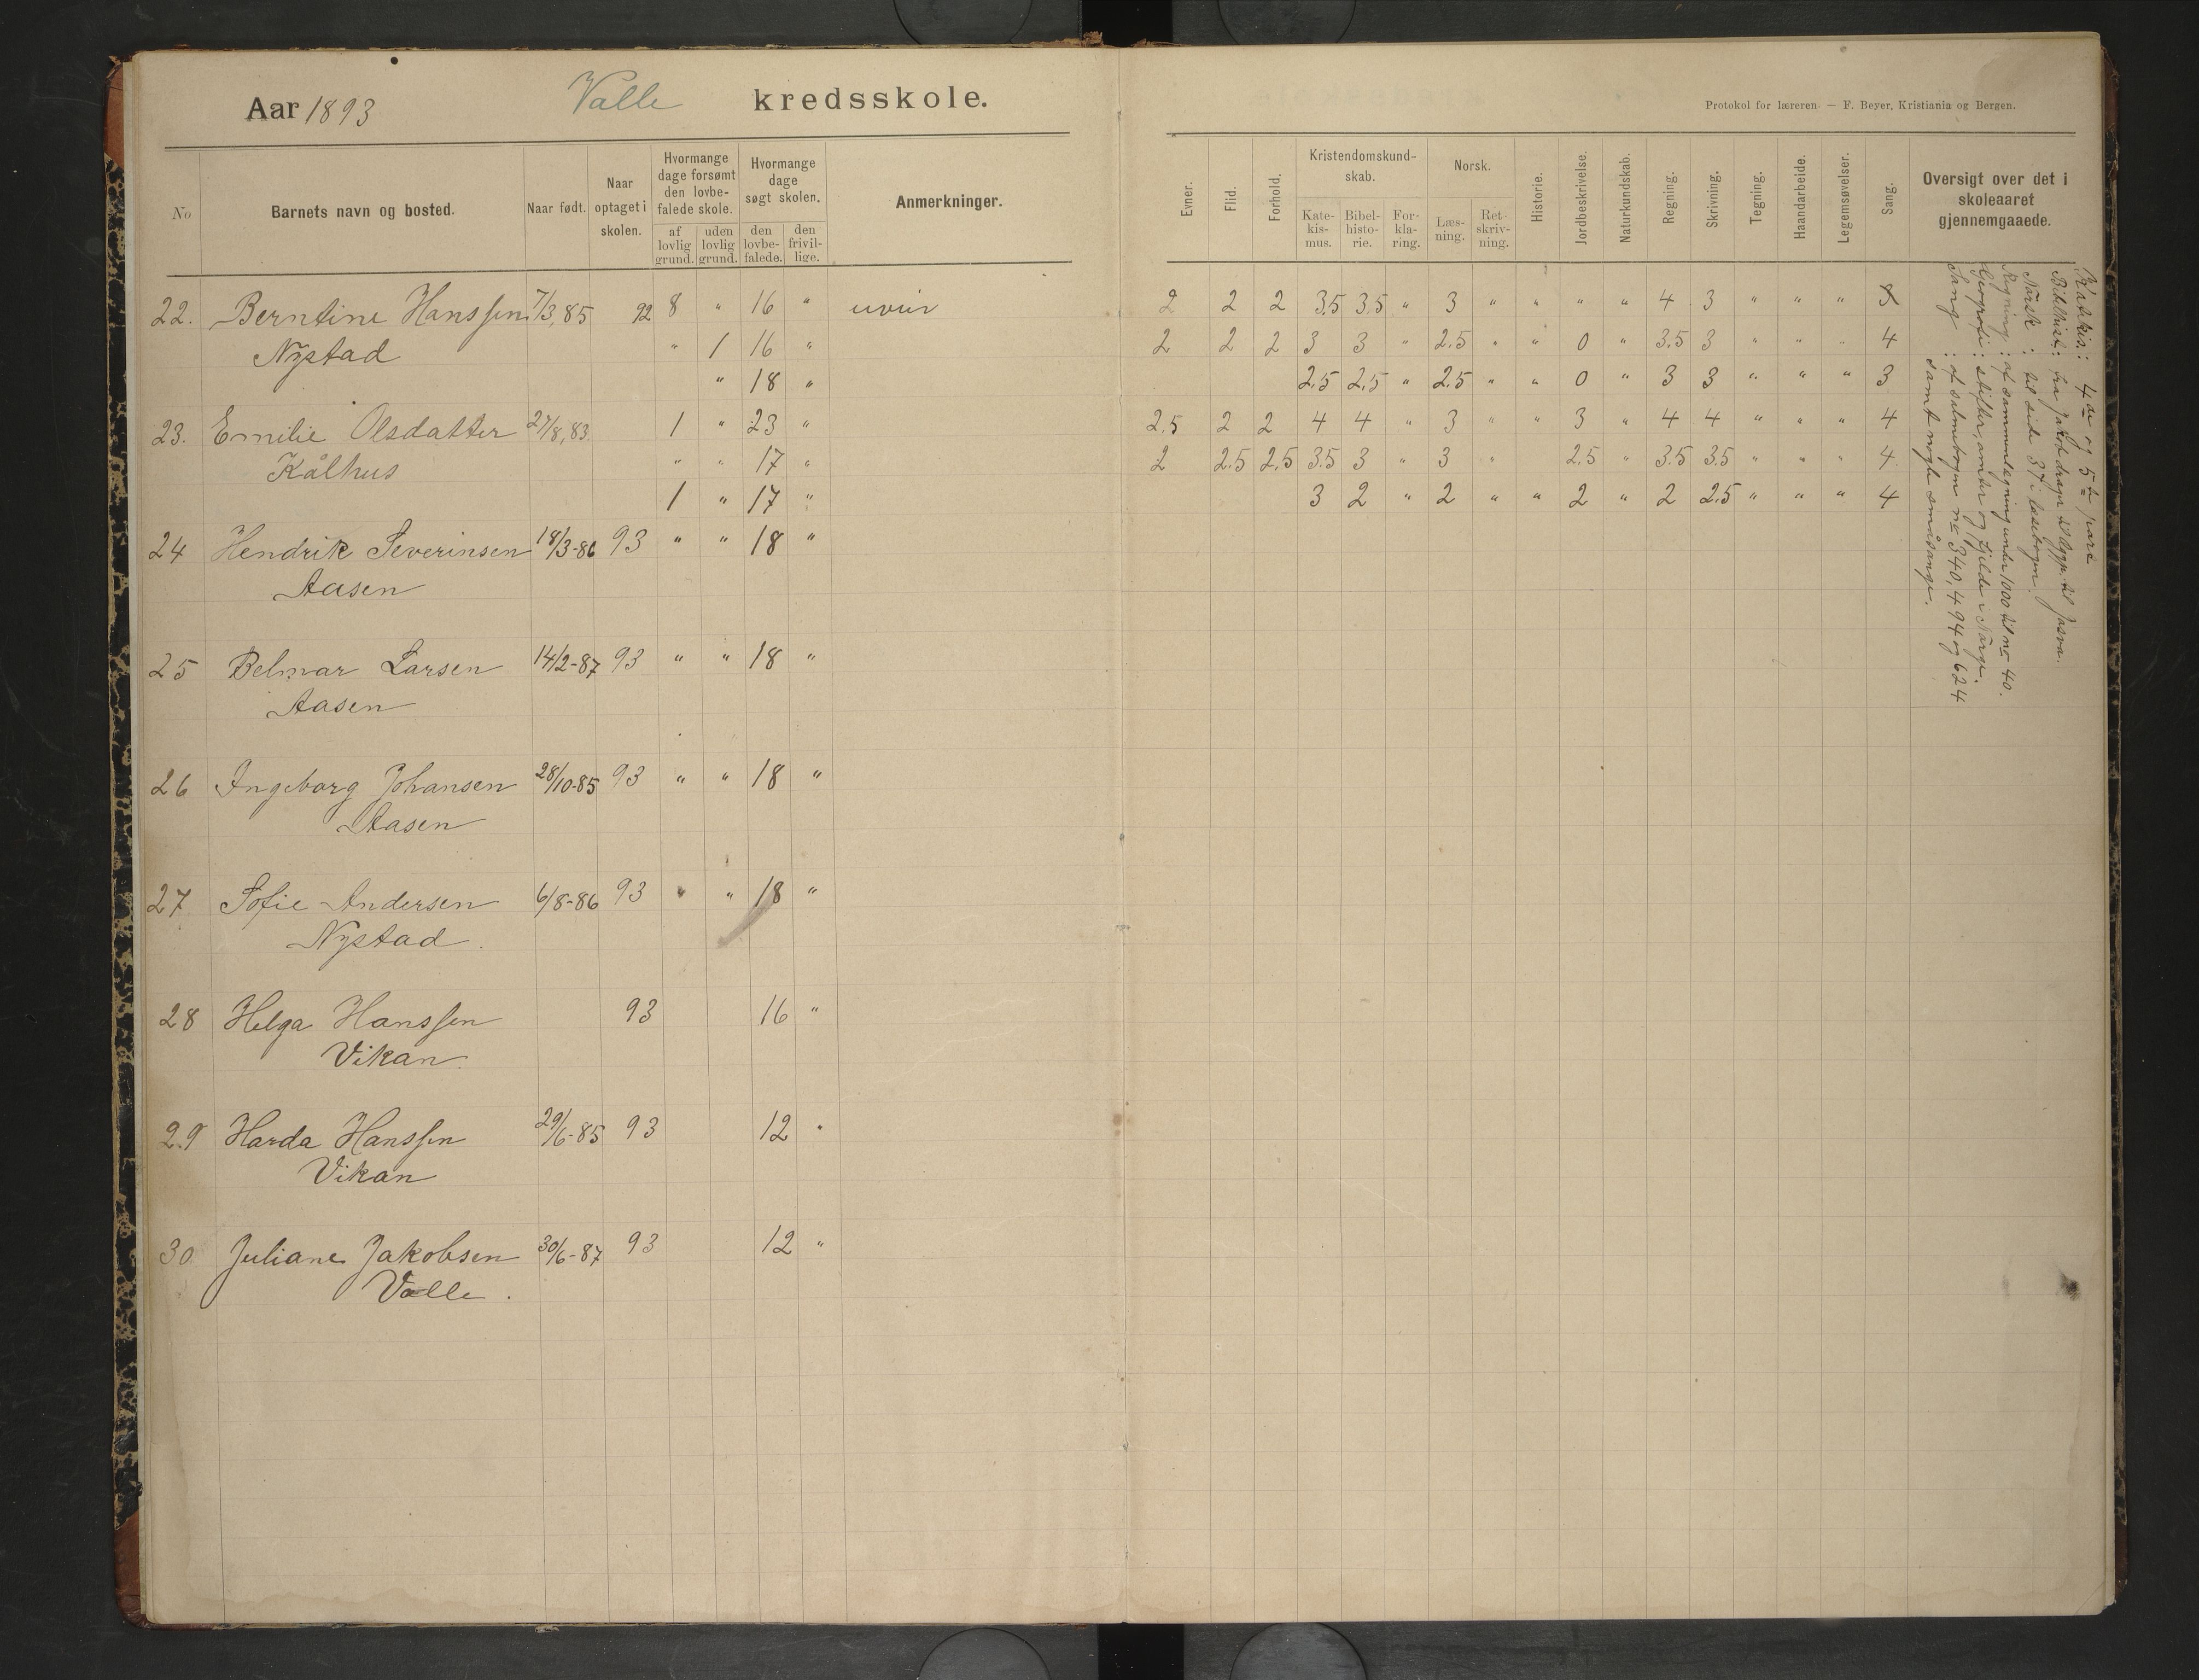 Aar 1893 Valle kredsskole.
Protokol for læreren. — F. Beyer, Kristiania og Bergen.
No Barnets navn og bosted. Naar født. Naar optaget i skolen. Hvormange dage forsømt den lovbefalede skole. af lovlig grund. uden lovlig grund. Hvormange dage søgt skolen. den lovbefalede. den frivillige. Anmerkninger.
Evner. Flid. Forhold. Kristendomskundskab. Katekismus. Bibelhistorie. Forklaring. Norsk. Læsning. Retskrivning. Historie. Jordbeskrivelse. Naturkundskab. Regning. Skrivning. Tegning. Haandarbeide. Legemsøvelser. Sang. Oversigt over det i skoleaaret gjennemgaaede.
22. Berntine Hanssen 7/3,85 92 8 " 16 " uveir 2 2 2 3.5 3.5 " 3 " " " " 4 3 " " "
Nystad " 1 16 " 2 2 2 3 3 " 2.5 " " 0 " 3.5 3 " " " 4
" 18 " 2.5 2.5 " 2.5 " " 0 " 3 3 " " " 3
23. Emilie Olsdatter 27/8,83 1 " 23 " 2.5 2 2 4 4 " 3 " " 3 " 4 4 " " " 4
Kålhus " " 17 " 2 2.5 2.5 3.5 3 " 3 " 2.5 " 3.5 3.5 " " " 4
1 " 17 " 3 2 " 2 " " 2 " 2 2.5 " " " 4
24 Hendrik Severinsen 18/3-86 93 " " 18 "
Aasen
25 Belmar Larsen 14/2-87 93 " " 18 "
Aasen
26 Ingeborg Johansen 28/10-85 93 " " 18 "
Aasen
27 Sofie Andersen 6/8-86 93 " " 18 "
Nystad.
28 Helga Hanssen 93 16 "
Vikan.
29 Harda Hanssen 29/6-85 93 12 "
Vikan
30 Juliane Jakobsen 30/6-87 93 12 "
Valle.
Katekis.: 4de og 5te part
Bibelhist.: fra Jakob drager til Ægyp. til Josva.
Norsk: til side 37 i læsebogen.
Regning: af sammenlægning under 1000 til no 40.
Geografi: stifter, amter og fjelde i Norge.
Sang: af salmebogen no 340, 494 og 624
samt nogle småsange.